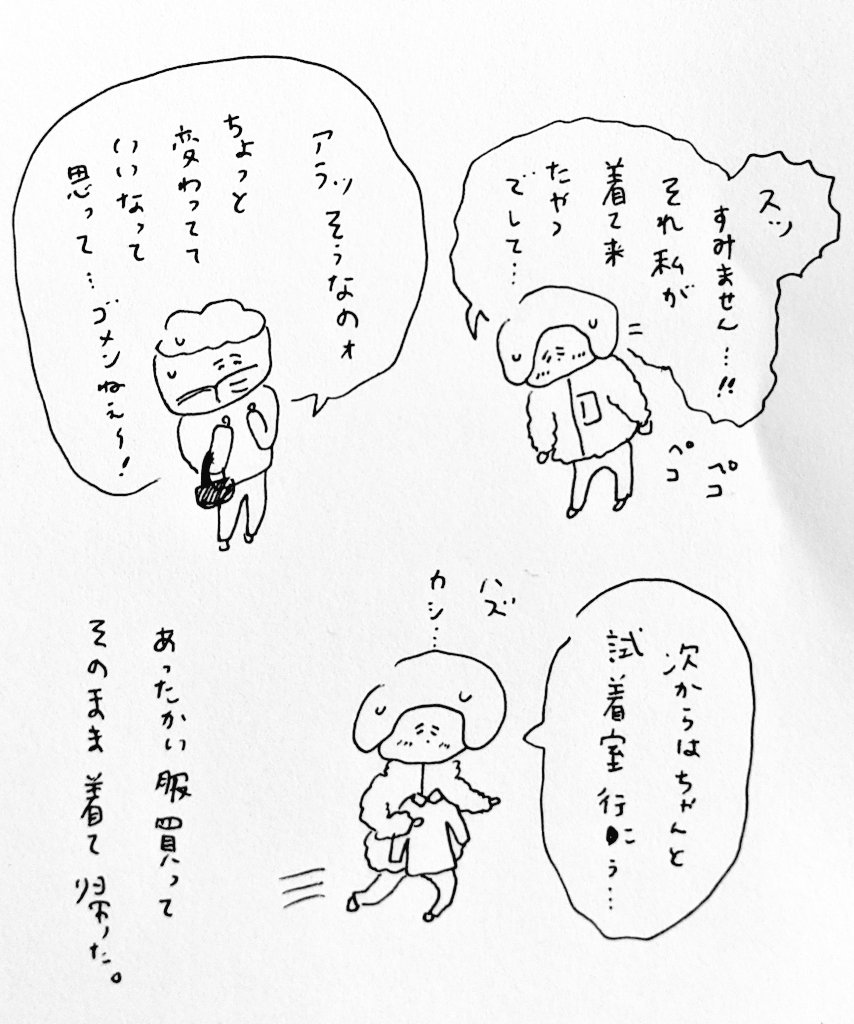 スッ
すみません…!!
それ私が
着て来
たやつ
でして…
ペコ
ペコ
アラッそうなのォ
ちょっと
変わってて
いいなって
思って…
ゴメンねぇ〜!
次からはちゃんと
試着室行こう…
ハズ
カシ…
あったかい服買って
そのまま着て帰った。